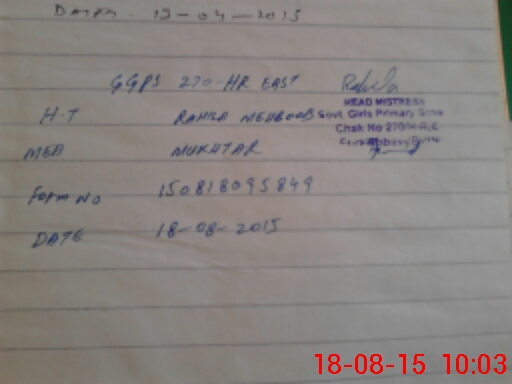 DATED. 13-04-2015
GGPS 270-HR EAST
HEAD MISTRESS
H-T RAHILA MEHBOOB Govt. Girls Primary
Chak No 270
MEA MUKHTAR
Form No 150818095849
DATE 18-08-2015
18-08-15 10:03